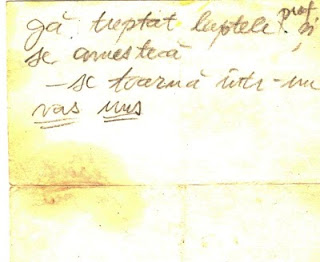 gă treptat laptele. praf
se amestecă și
– se toarnă într-un
vas uns